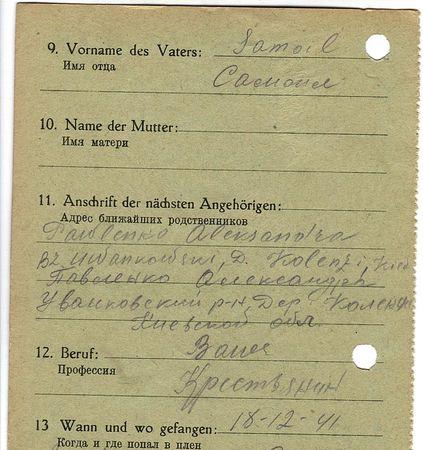 9. Vorname des Vaters: Samoil
Имя отца
Самоил
10. Name der Mutter:
Имя матери
11. Anschrift der nächsten Angehörigen:
Адрес ближайших родственников
Pawlenko Aleksandra
Bz Iwankowski, D. Kolenzi, Kiew
Павленко Александра
Иванковский р-н, Дер. Коленци
Киевской обл.
12. Beruf: Bauer
Профессия
Крестьянин
13 Wann und wo gefangen: 18-12-41
Когда и где попал в плен